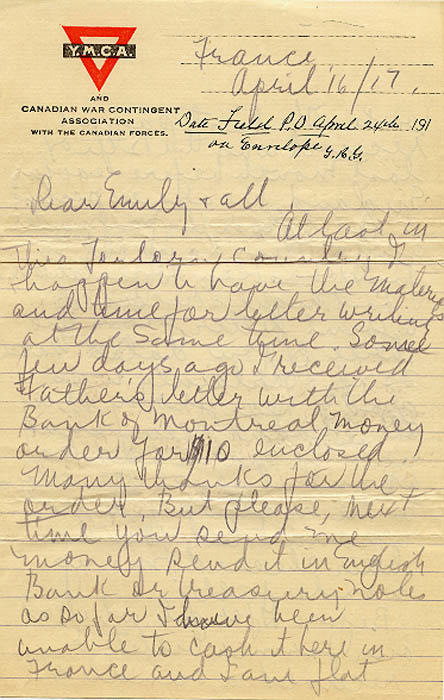 Y.M.C.A.
AND
CANADIAN WAR CONTINGENT
ASSOCIATION
WITH THE CANADIAN FORCES.
France,
April 16/17.
Date Field P.O April 24th 191
on Envelope
Dear Emily & all,
At last in
this forlorn country I
happen to have the materials
and time for letter writing
at the same time. Some
few days ago I received
Father's letter with the
Bank of Montreal money
order for $10 enclosed.
Many thanks for the
order, But please, next
time you send me
money send it in English
Bank or treasury notes
as so far I have been
unable to cash it here in
France and I am flat